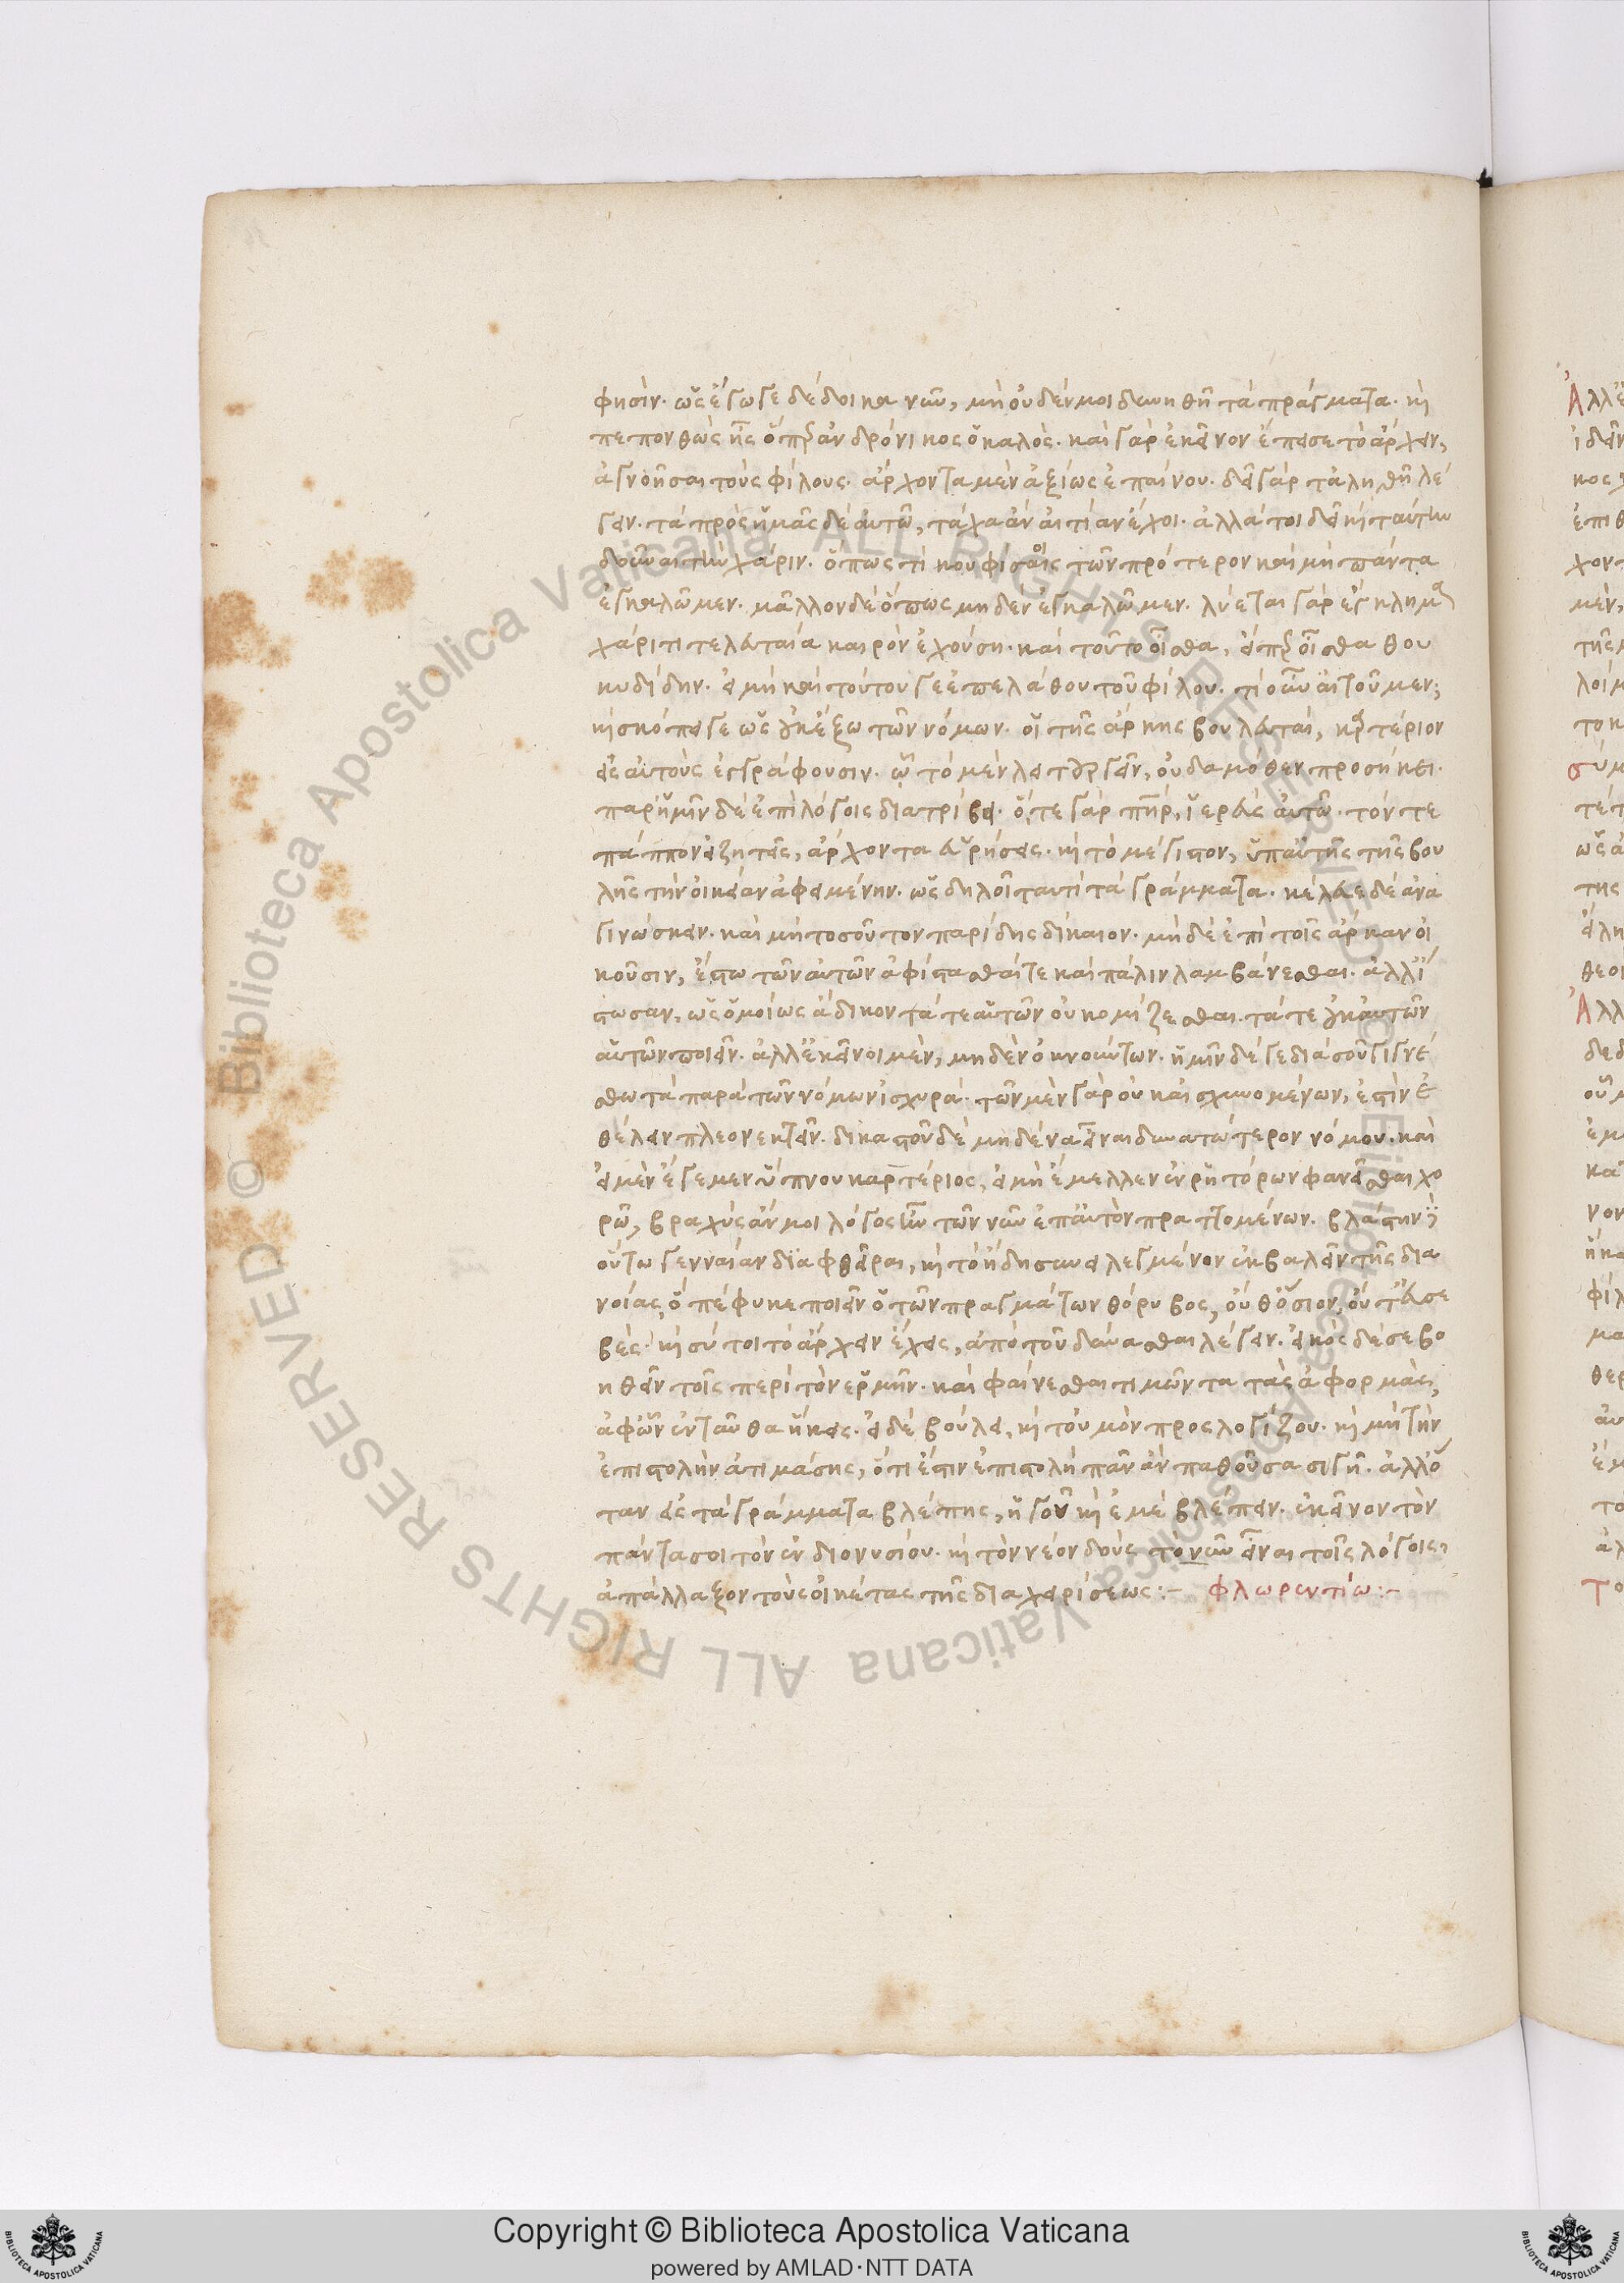 φησίν. ὡς ἔγωγε δέδοικα νῦν, μὴ οὐδέν μοι δεινηθῆ τὰ πράγματα. κὶ
πεπονθὼς ἧς ὅπερ ἀνδρόνικος ὁ καλὸς. καὶ γὰρ ἐκεῖνον ἔπεισε τὸ ἄρχειν,
ἀγνοῆσαι τοὺς φίλους. ἄρχοντα μὲν ἀξίως ἐπαίνου. δεῖ γὰρ τἀληθῆ λέ
γειν. τὰ πρὸς ἡμᾶς δὲ αὐτῶ, τάχα ἂν αἰτίαν ἔχοι. ἀλλά τοι δεῖ κὶ ταύτην
δοῦναι τὴν χάριν. ὅπως τι κουφίσαις τῶν πρότερον καὶ μὴ πάντα
ἐγκαλῶμεν. μᾶλλον δὲ ὅπως μηδὲν ἐγκαλῶμεν. λύεται γὰρ ἔγκλημα
χάριτι τελευταία καιρὸν ἐχούση. καὶ τοῦτο οἶσθα, εἴπερ οἶσθα θου
κυδίδην. εἰ μὴ καὶ τούτου γε ἐπελάθου τοῦ φίλου. τί οὖν αἰτοῦμεν;
κὶ σκόπει γε ὡς ἐκ ἔξω τῶν νόμων. οἱ τῆς ἄρκης βουλευταί, καρτέριον
εἰς αὐτοὺς ἐγγράφουσιν. ᾧ τὸ μὲν λειτουργεῖν, οὐδαμόθεν προσήκει.
παρ ἡμῖν δὲ ἐπὶ λόγοις διατρίβει. ὅ, τε γὰρ πατὴρ, ἱερεὺς αὐτῶ. τόν τε
πάππον εἰ ζητεῖς, ἄρχοντα εὑρήσεις. κὶ τὸ μέγιστον, ὑπ αὐτῆς τῆς βου
λῆς τὴν οἰκείαν ἀφειμένην. ὡς δηλοῖ ταυτὶ τὰ γράμματα. κέλευε δὲ ἀνα
γινώσκειν. καὶ μὴ τοσοῦτον παρίδης δίκαιον. μὴ δὲ ἐπὶ τοῖς ἄρκαν οἰ
κοῦσιν, ἔστω τῶν αὐτῶν ἀφίστασθαί τε καὶ πάλιν λαμβάνεσθαι. ἀλλ ἴ
στωσαν, ὡς ὁμοίως ἄδικον τά τε αὑτῶν οὐ κομίζεσθαι. τά τε ἐκ αὑτῶν
αὑτῶν ποιεῖν. ἀλλ ἐκεῖνοι μὲν, μηδὲν ὀκνούντων. ἡμῖν δέ γε διὰ σοῦ γιγνέ
σθω τὰ παρὰ τῶν νόμων ἰσχυρά. τῶν μὲν γὰρ οὐκ αἰσχυνομένων, ἐστὶν ἐ
θέλειν πλεονεκτεῖν. δικαστοῦ δὲ μηδένα εἶναι δυνατώτερον νόμου. καὶ
εἰ μὲν ἔγεμεν ὕπνου καρτέριος, εἰ μὴ ἔμελλεν ἐν ῥητόρων φανεῖσθαι χο
ρῶ, βραχὺς ἄν μοι λόγος ἦν τῶν νῦν ἐπ αὐτὸν πραττομένων. βλάστην
οὕτω γενναίαν διαφθεῖραι, κὶ τὸ ἤδη συνειλεγμένον ἐκβαλεῖν τῆς δια
νοίας, ὃ πέφυκε ποιεῖν ὁ τῶν πραγμάτων θόρυβος, οὐθ ὅσιον, οὔτ εὐσε
βὲς. κὶ σύ τοι τὸ ἄρχειν ἔχεις, ἀπὸ τοῦ δύνασθαι λέγειν. εἰκὸς δέ σε βο
ηθεῖν τοῖς περὶ τὸν ἑρμῆν. καὶ φαίνεσθαι τιμῶντα τὰς ἀφορμὰς,
ἀφ ὧν ἐνταῦθα ἥκεις. εἰ δὲ βούλει, κὶ τοὐμὸν προσλογίζου. κὶ μὴ τὴν
ἐπιστολὴν ἀτιμάσης, ὅτι ἔστιν ἐπιστολὴ πᾶν ἂν παθοῦσα σιγῆ. ἀλλ ὅ
ταν εἰς τὰ γράμματα βλέπης, ἡγοῦ κὶ ἐμὲ βλέπειν. ἐκεῖνον τὸν
πάντα σοι τὸν ἐν διονυσίου. κὶ τὸν νέον δοὺς τονῦν εἶναι τοῖς λόγοις,
ἀπάλλαξον τοὺς οἰκέτας τῆς διαχειρίσεως:- φλωρεντίω:-
Copyright © Biblioteca Apostolica Vaticana
powered by AMLAD·NTT DATA